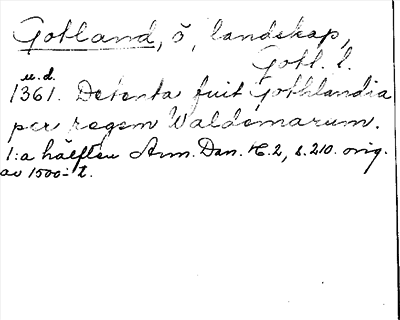 Gotland, ö, landskap,
Gotl. l.
u.d.
1361. Detenta fuit Gothlandia
per regem Waldemarum.
1:a hälften Ann. Dan. K.2, s.210. orig.
av 1500-t.